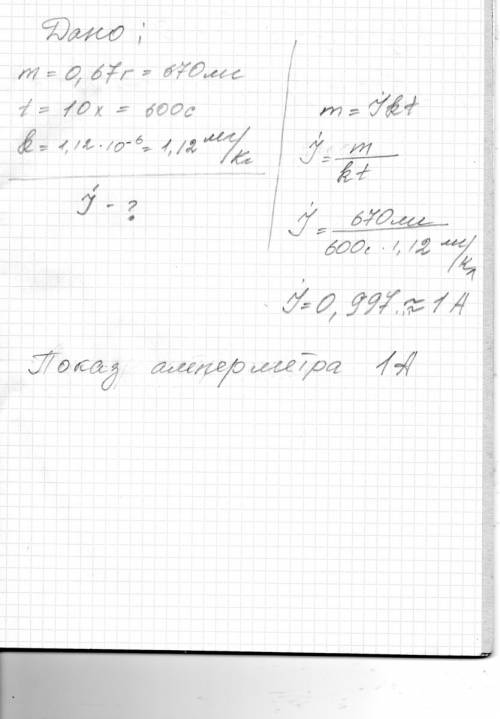 Дано:
m = 0,67г = 670мг
t = 10х = 600с
k = 1,12·10⁻⁶ = 1,12 мг/Кл
I - ?
m = Ikt
I = m / kt
I = 670мг / 600с · 1,12 мг/Кл
I = 0,997.. ≈ 1А
Показ амперметра 1А